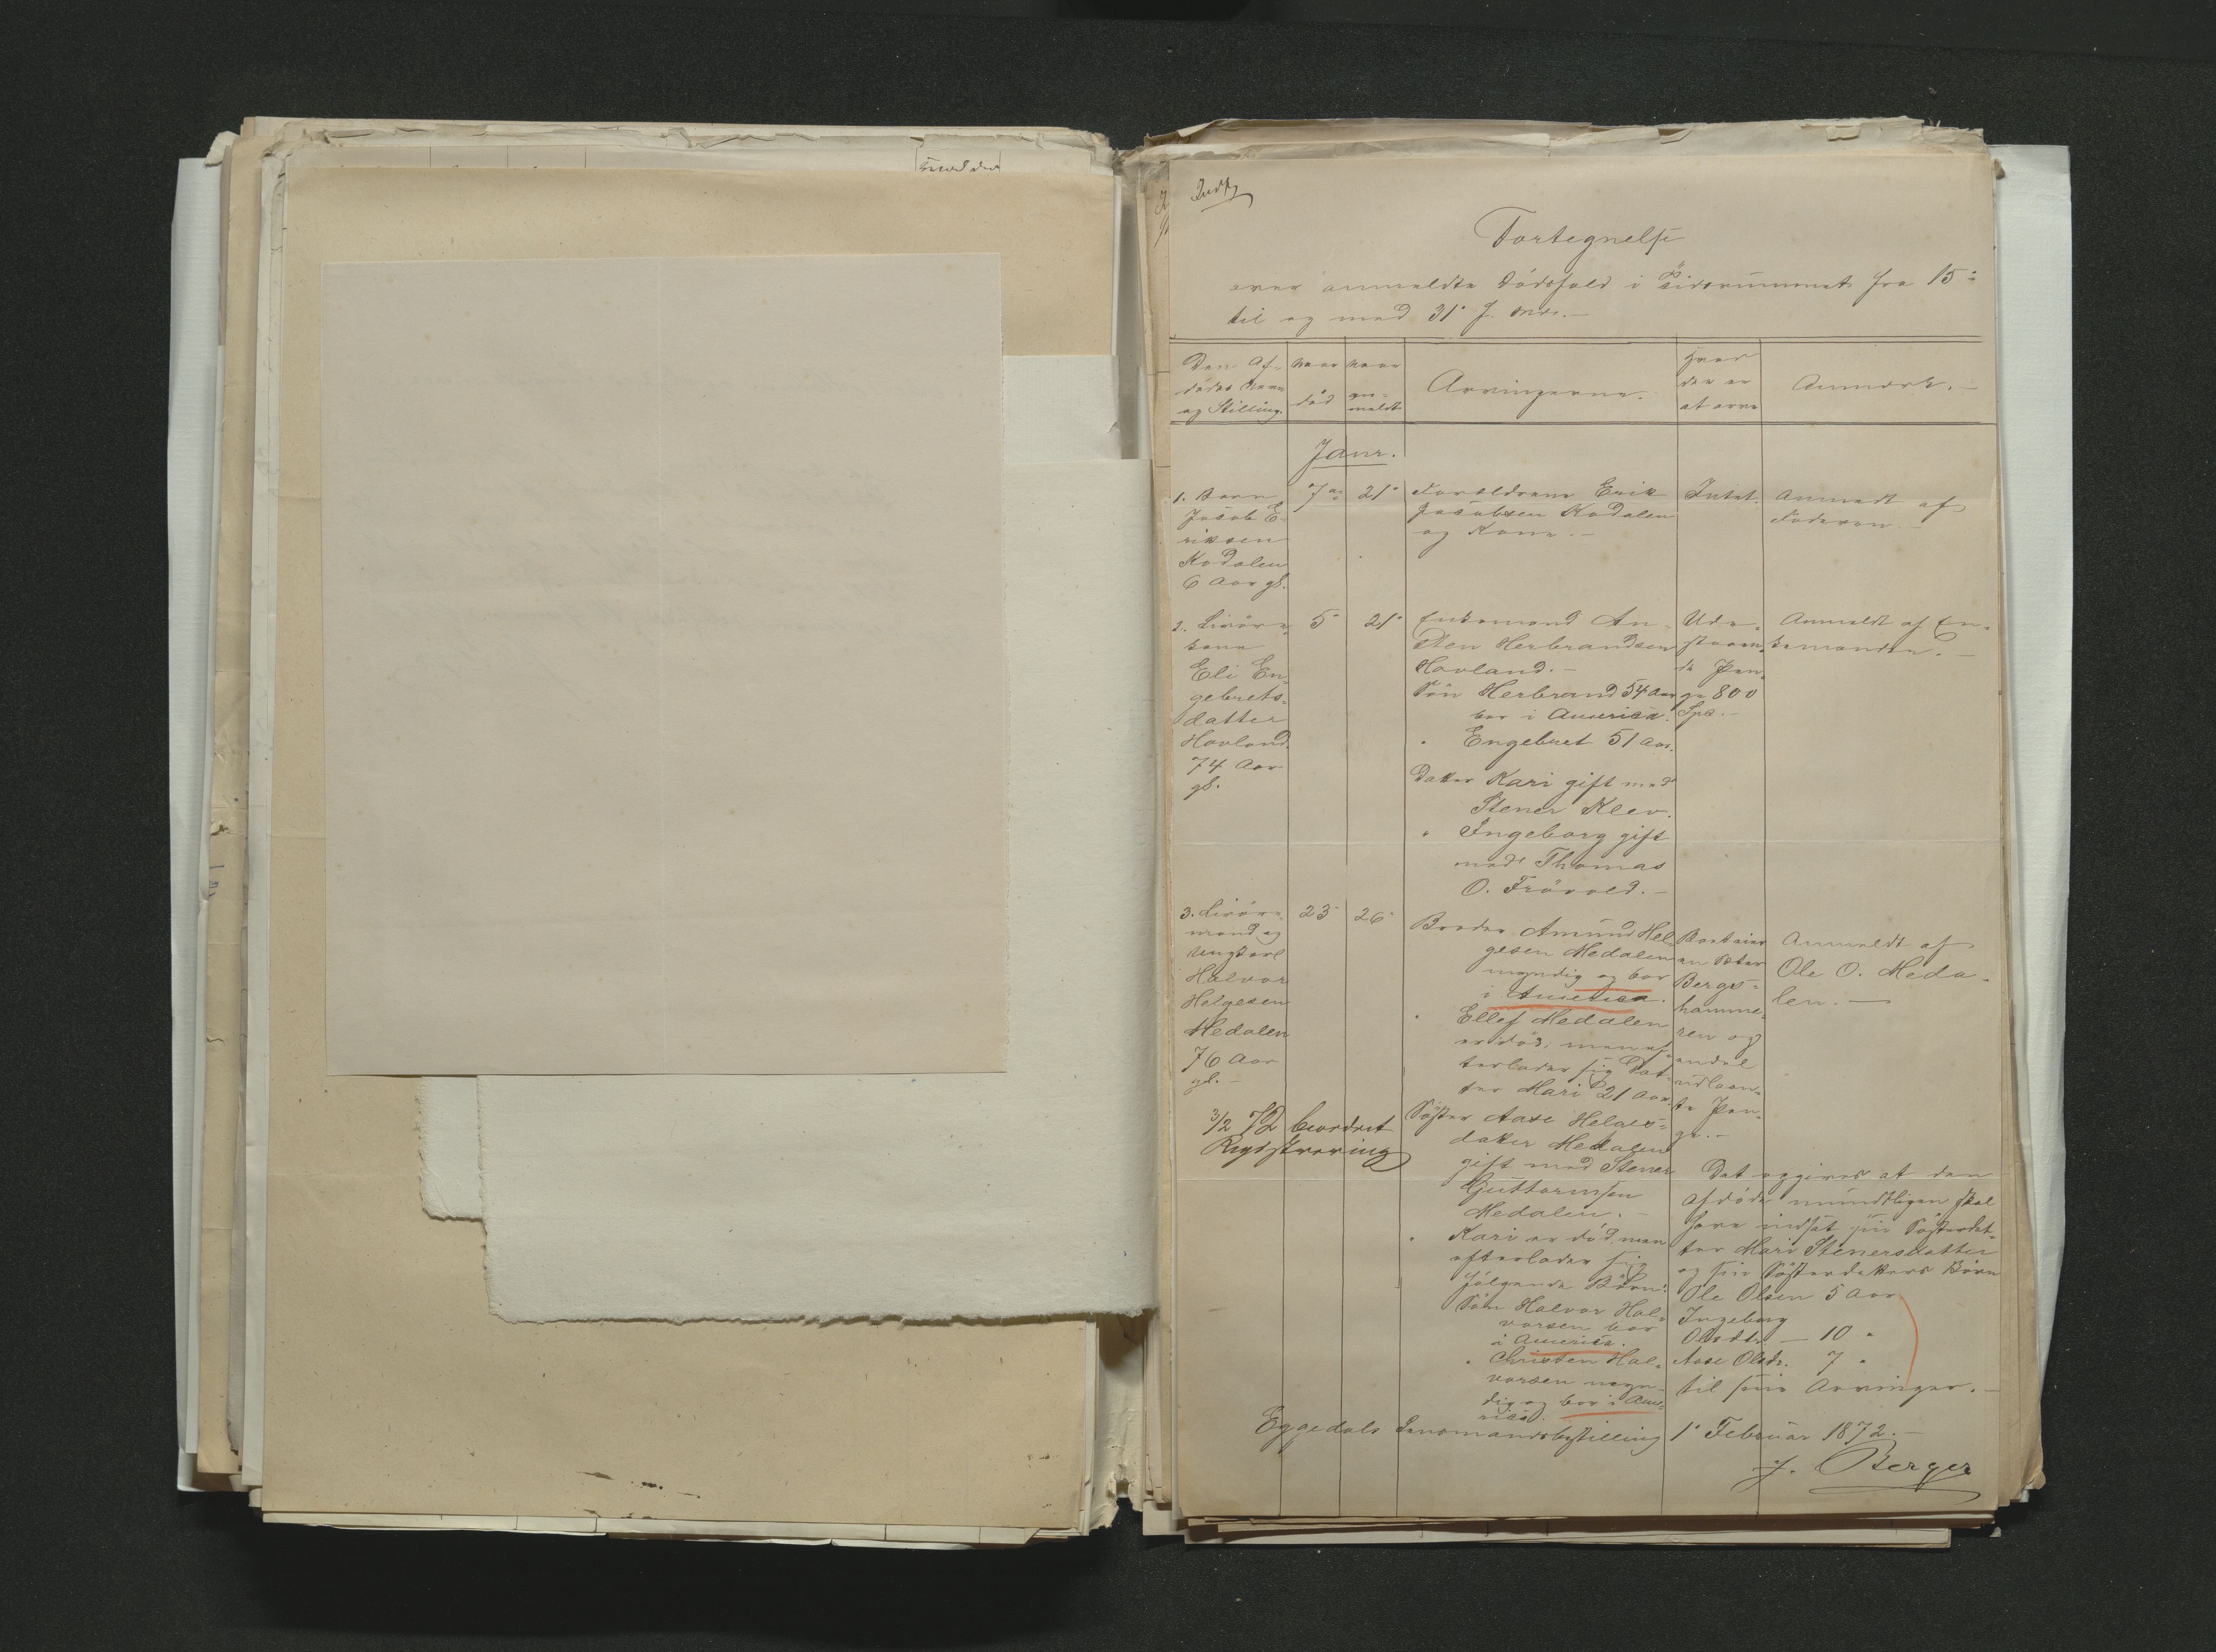 Fortegnelse
over anmeldte Dödsfald i Tidsrummet fra 15
til og med 31 f. Md.
Den Af-
dödes Navn
og Stilling.
Naar
död
Naar
an-
meldt
Arvingerne.
Hvor
der er
at arve
Anmærk.
Janr.
1. Barn
Jacob E-
riksen
Kodalen
6 Aar gl.
7
21
Forældrene Erik
Jacobsen Kodalen
og Kone.
Intet.
Anmedt af
Faderen
2. Livöre-
kone
Eli En-
gebrets-
datter
Hovland
74 Aar
gl.
5
21
Enkemand An-
sten Herbrandsen
Hovland.
Sön Herbrand 54 Aar
bor i America.
" Engebret 51 Aar.
Datter Kari gift med
Stener Klev.
" Ingeborg gift
med Thomas
O. Frövold.
Ude-
staaen-
de Pen-
ge 800
Spd.
Anmeldt af En-
kemanden.
3. Livöre-
mand og
Ungkarl
Halvor
Helgesen
Medalen
76 Aar
gl.
23
26
Broder Amund Hel-
gesen Medalen
myndig og bor
i America.
" Ellef Medalen
er död, men ef-
terlader sig Dat-
ter Mari 21 Aar.
Söster Aase Helges-
datter Medalen
gift med Stener
Guttormsen
Medalen.
" Kari er död, men
efterlader sig
fölgende Börn:
Sön Halvor Hal-
vorsen bor
i America.
" Christen Hal-
vorsen myn-
dig og bor i Ame-
rica.
Bergs-
hamme-
ren og
endel
udlaan-
te Pen-
ge.
Anmeldt af
Ole O. Meda-
len.
3/2 72 beordret
Registrering
Det opgives at den
Afdöde mundtligen skal
have indsat sin Södsterdat-
ter Mari Stenersdatter
og sin Sösterdatters Börn
Ole Olsen 5 Aar
Ingeborg
Olsdtr. — 10 "
Aase Olsdr. 7 "
til sine Arvinger.
Eggedals Lensmandsbestilling 1 Februar 1872.
J. Berger